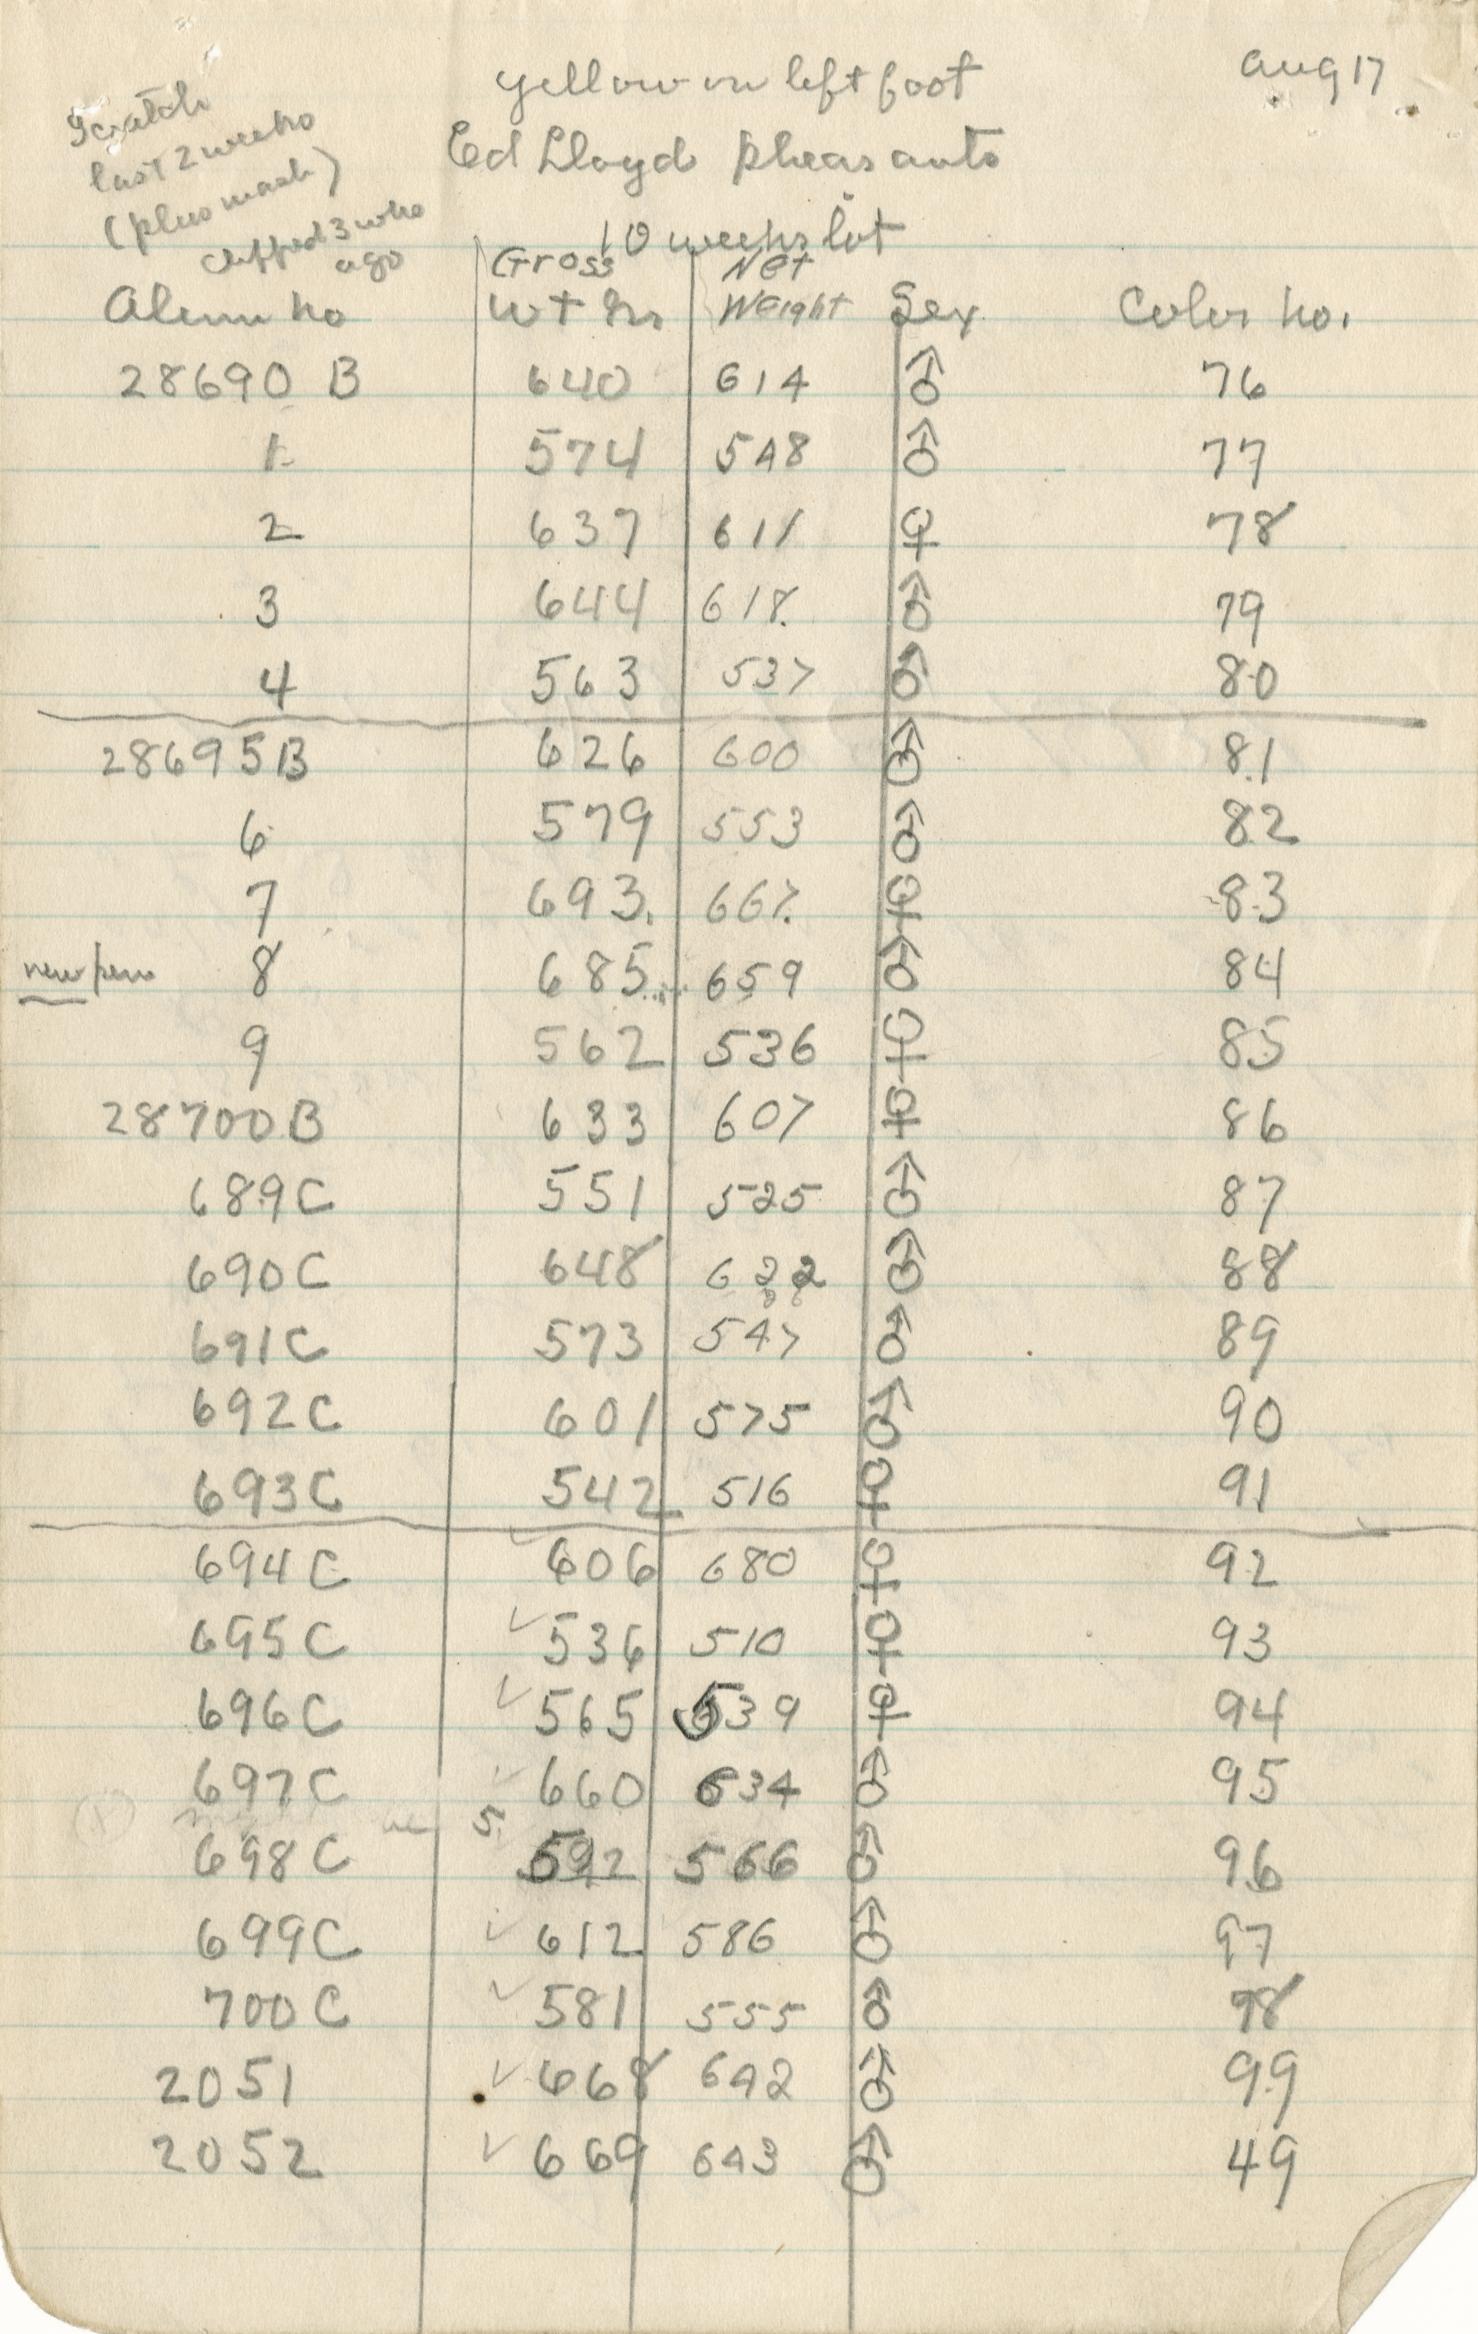 yellow on left foot
aug 17
Ed Lloyd Pheasants
10 weeks lot
Scratch
last 2 weeks
(plus mash)
clipped 3 wks
ago
Alum no Gross wt grs Net Weight Sex Color no.
28690 B 640 614 ♂ 76
1 574 548 ♂ 77
2 637 611 ♀ 78
3 644 618. ♂ 79
4 563 537 ♂ 80
28695B 626 600 ♂ 81
6 579 553 ♂ 82
7 693. 667. ♀ 83
new pens 8 685 659 ♂ 84
9 562 536 ♀ 85
28700B 633 607 ♀ 86
689C 551 525 ♂ 87
690C 648 622 ♂ 88
691C 573 547 ♂ 89
692C 601 575 ♂ 90
693C 542 516 ♀ 91
694C ✓ 606 680 ♀ 92
695C ✓ 536 510 ♀ 93
696C ✓ 565 539 ♀ 94
697C ✓ 660 634 ♂ 95
5
698C 592 566 ♂ 96
699C ✓ 612 586 ♂ 97
700C ✓ 581 555 ♂ 98
2051 ✓ 668 642 ♂ 99
2052 ✓ 669 643 ♂ 49